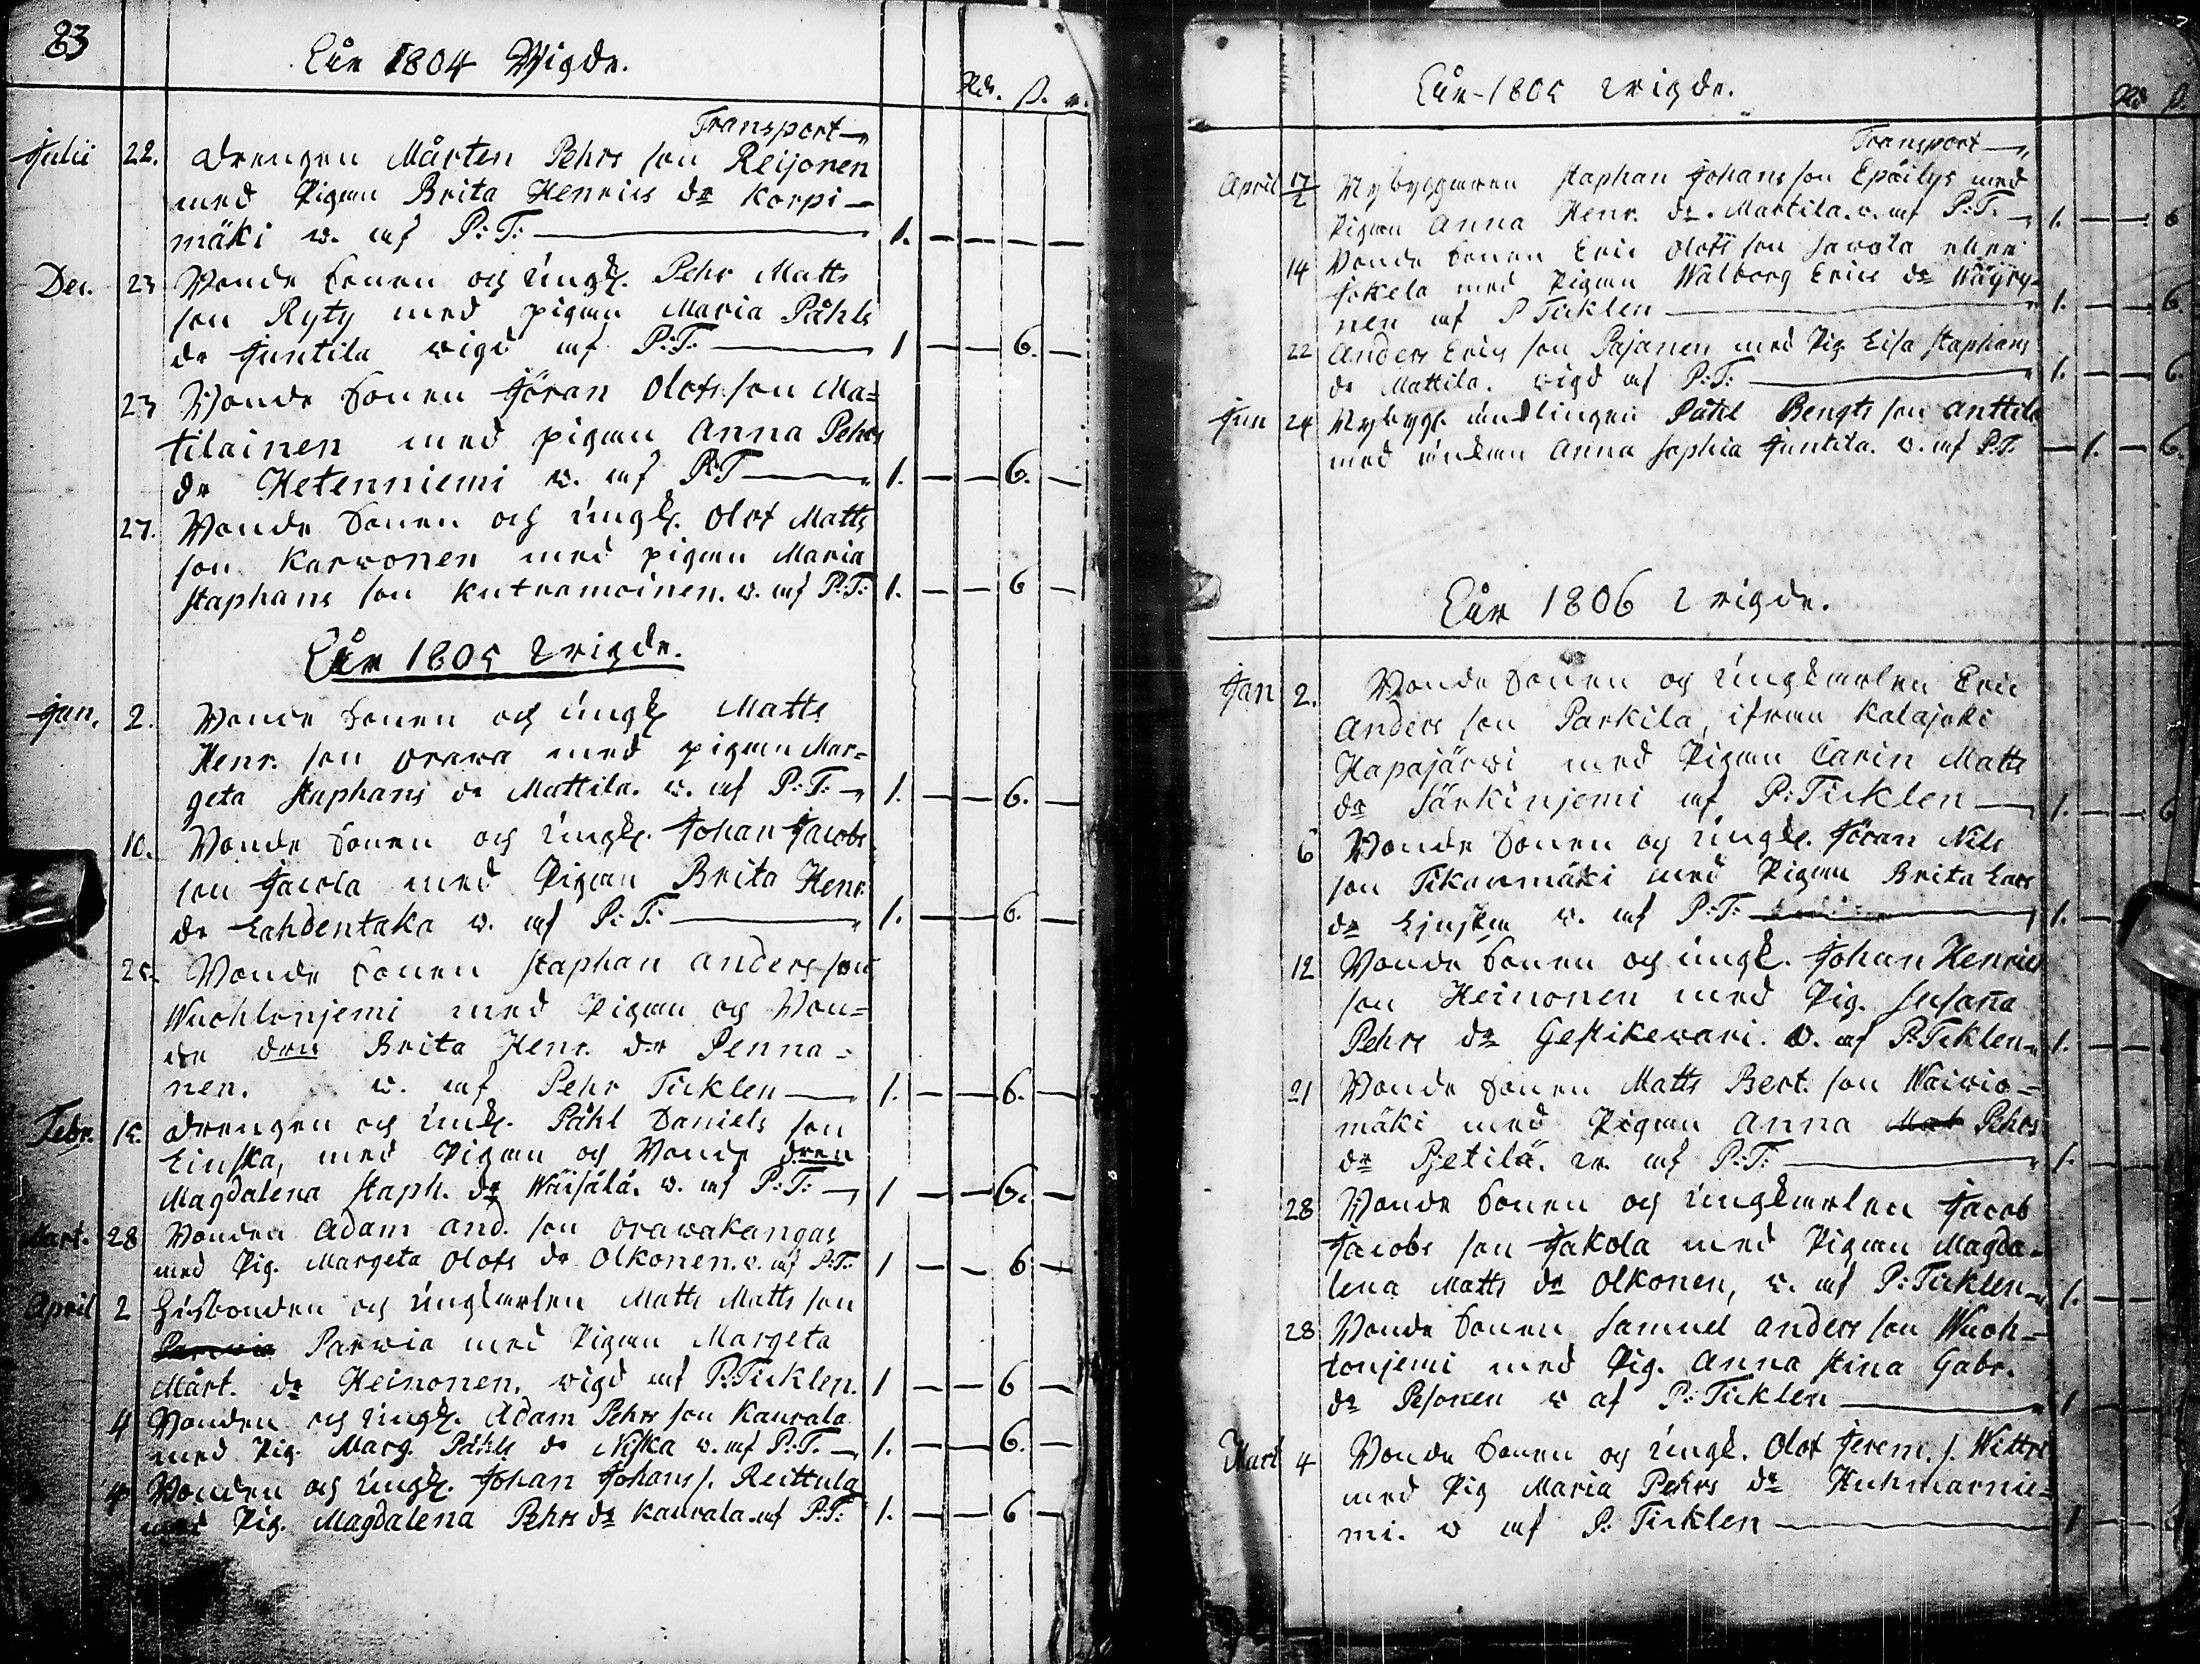 83
Åhr 1804 Wigde.
Rd. ß. r.
Transport
Julii 22. Drengen Mårten Pehrs son Reijonen
med Pigan Brita Henrics dr Korpi-
mäki w. af P:T: 1.
Dec. 23 Bonde Sonen och ungk. Pehr Matts
son Ryty med pigan Maria Påhls
dr Juntila wigd af P:T: 1 6.
23 Bonde Sonen Jöran Olofs son Ma=
tilainen med pigan Anna Pehrs
dr Hetenniemi w. af P:T 1. 6.
27. Bonde Sonen och ungk. Olof Matts
son Karwonen med pigan Maria
Staphans son Kutramoinen. w. af P:T: 1. 6
Åhr 1805 Wigde.
Jan. 2. Bonde Sonen och ungk Matts
Henr. son Orawa med pigan Mar=
geta Staphans dr Mattila. w. af P:T: 1. 6.
10. Bonde Sonen och ungk. Johan Jacobs
son Jacola med Pigan Brita Henr.
dr Lahdentaka w. af P:T: 1. 6.
25. Bonde Sonen Staphan Anders son
Wuohtonjemi med Pigan och Bon=
de dren Brita Henr. dr Penna=
nen. w. af Pehr Ticklen 1. 6.
Febr. 15. Drengen och ungk. Påhl Daniels son
Linska, med Pigan och Bonde dren
Magdalena Staph. dr Wäisälä. w. af P:T: 1 6.
Mart. 28 Bonden Adam And. son Orawakangas
med Pig. Margeta Olofs dr Olkonen. w. af P:T: 1 6
April 2 Husbonden och ungkarlen Matts Matts son
Parwia Parwia med Pigan Margeta
Mårt. dr Heinonen. wigd af P:Ticklen. 1 6
4 Bonden och ungk. Adam Pehrs son Kaurala
med Pig. Marg. Påhls dr Niska w. af P:T. 1. 6.
4 Bonden och ungk. Johan Johans s. Reittula
med Pig. Magdalena Pehrs dr Kaurala af P:T: 1. 6
Åhr 1805 Wigde.
Rd ß.
Transport
April Nybyggaren Staphan Johans son Epäilys med
Pigan Anna Henr. dr. Martila. w. af P:T. 1. 6
14 Bonde Sonen Eric Olofs son Sawola eller
Jokela med Pigan Walborg Erics dr Wäyry=
nen af P Ticklen 1. 6.
22 Anders Erics son Pajanen med Pig Lisa Staphans
dr Mattila. wigd af P:T: 1. 6.
Jun 24 Nybygg. änklingen Påhl Bengts son Anttila
med änkan Anna Sophia Juntila. w. af P:T. 1. 6.
Åhr 1806 Wigde.
Jan 2. Bonde Sonen och Ungkarlen Eric
Anders son Parkila, ifrån Kalajoki
Hapajärwi med Pigan Carin Matts
dr Särkinjemi af P:Ticklen 1. 6
6 Bonde Sonen och ungk. Jöran Nils
son Tikanmäki med Pigan Brita Lars
dr Ljuska w. af P:T: 1.
12 Bonde Sonen och ungk. Johan Henrics
son Heinonen med Pig. Susana
Pehrs dr Gestikewari. w. af P:Ticklen 1.
21 Bonde Sonen Matts Bert. son Waiwio=
mäki med Pigan Anna Mat Pehrs
dr Pjetilä. w. af P:T: 1.
28 Bonde Sonen och Ungkarlen Jacob
Jacobs son Jakola med Pigan Magda=
lena Matts dr Olkonen, w. af P:Ticklen 1.
28 Bonde Sonen Samuel Anders son Wuoh=
tonjemi med Pig. Anna Stina Gabr.
dr Pesonen w af P:Ticklen 1
Mart 4 Bonde Sonen och ungk. Olof Jerem. s. Wittri
med Pig Maria Pehrs dr Huhmarnie=
mi. w af P: Ticklen 1 6